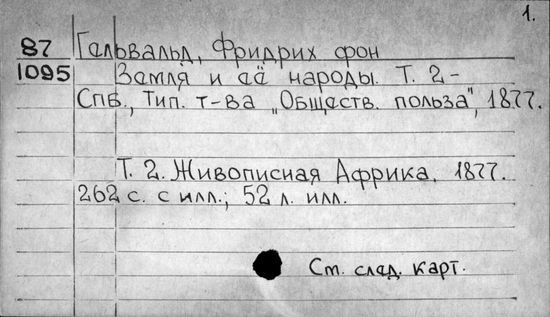 1.
87 Гальвальд, Фридрих фон
1095 Земля и её народы. Т. 2-
СПб., Тип. т-ва „Обществ. польза", 1877.
Т. 2. Живописная Африка. 1877.
262 с. с илл.; 52 л. илл.
См. след. карт.